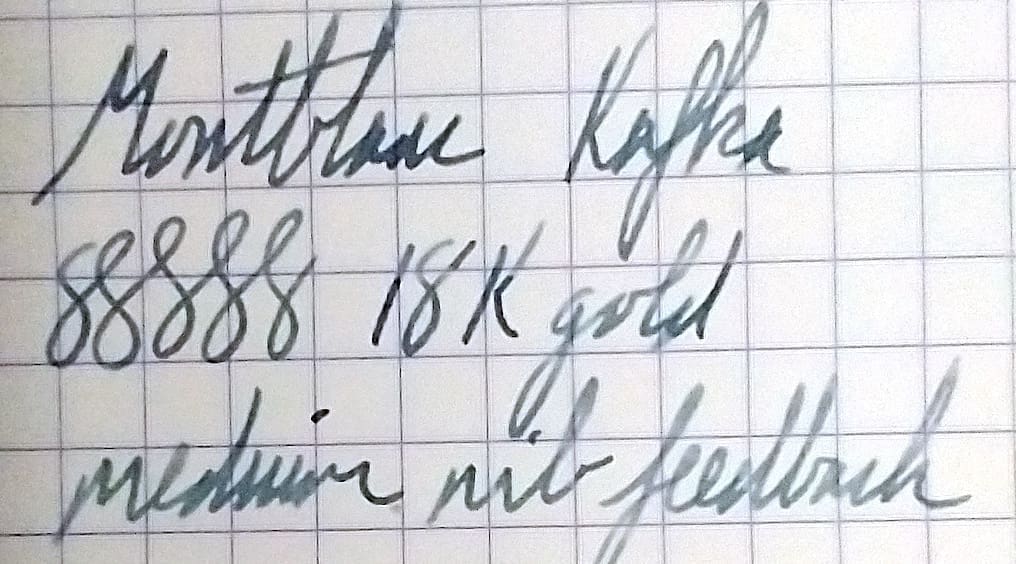 Montblanc Kafka
88888 18K gold
medium nib feedback